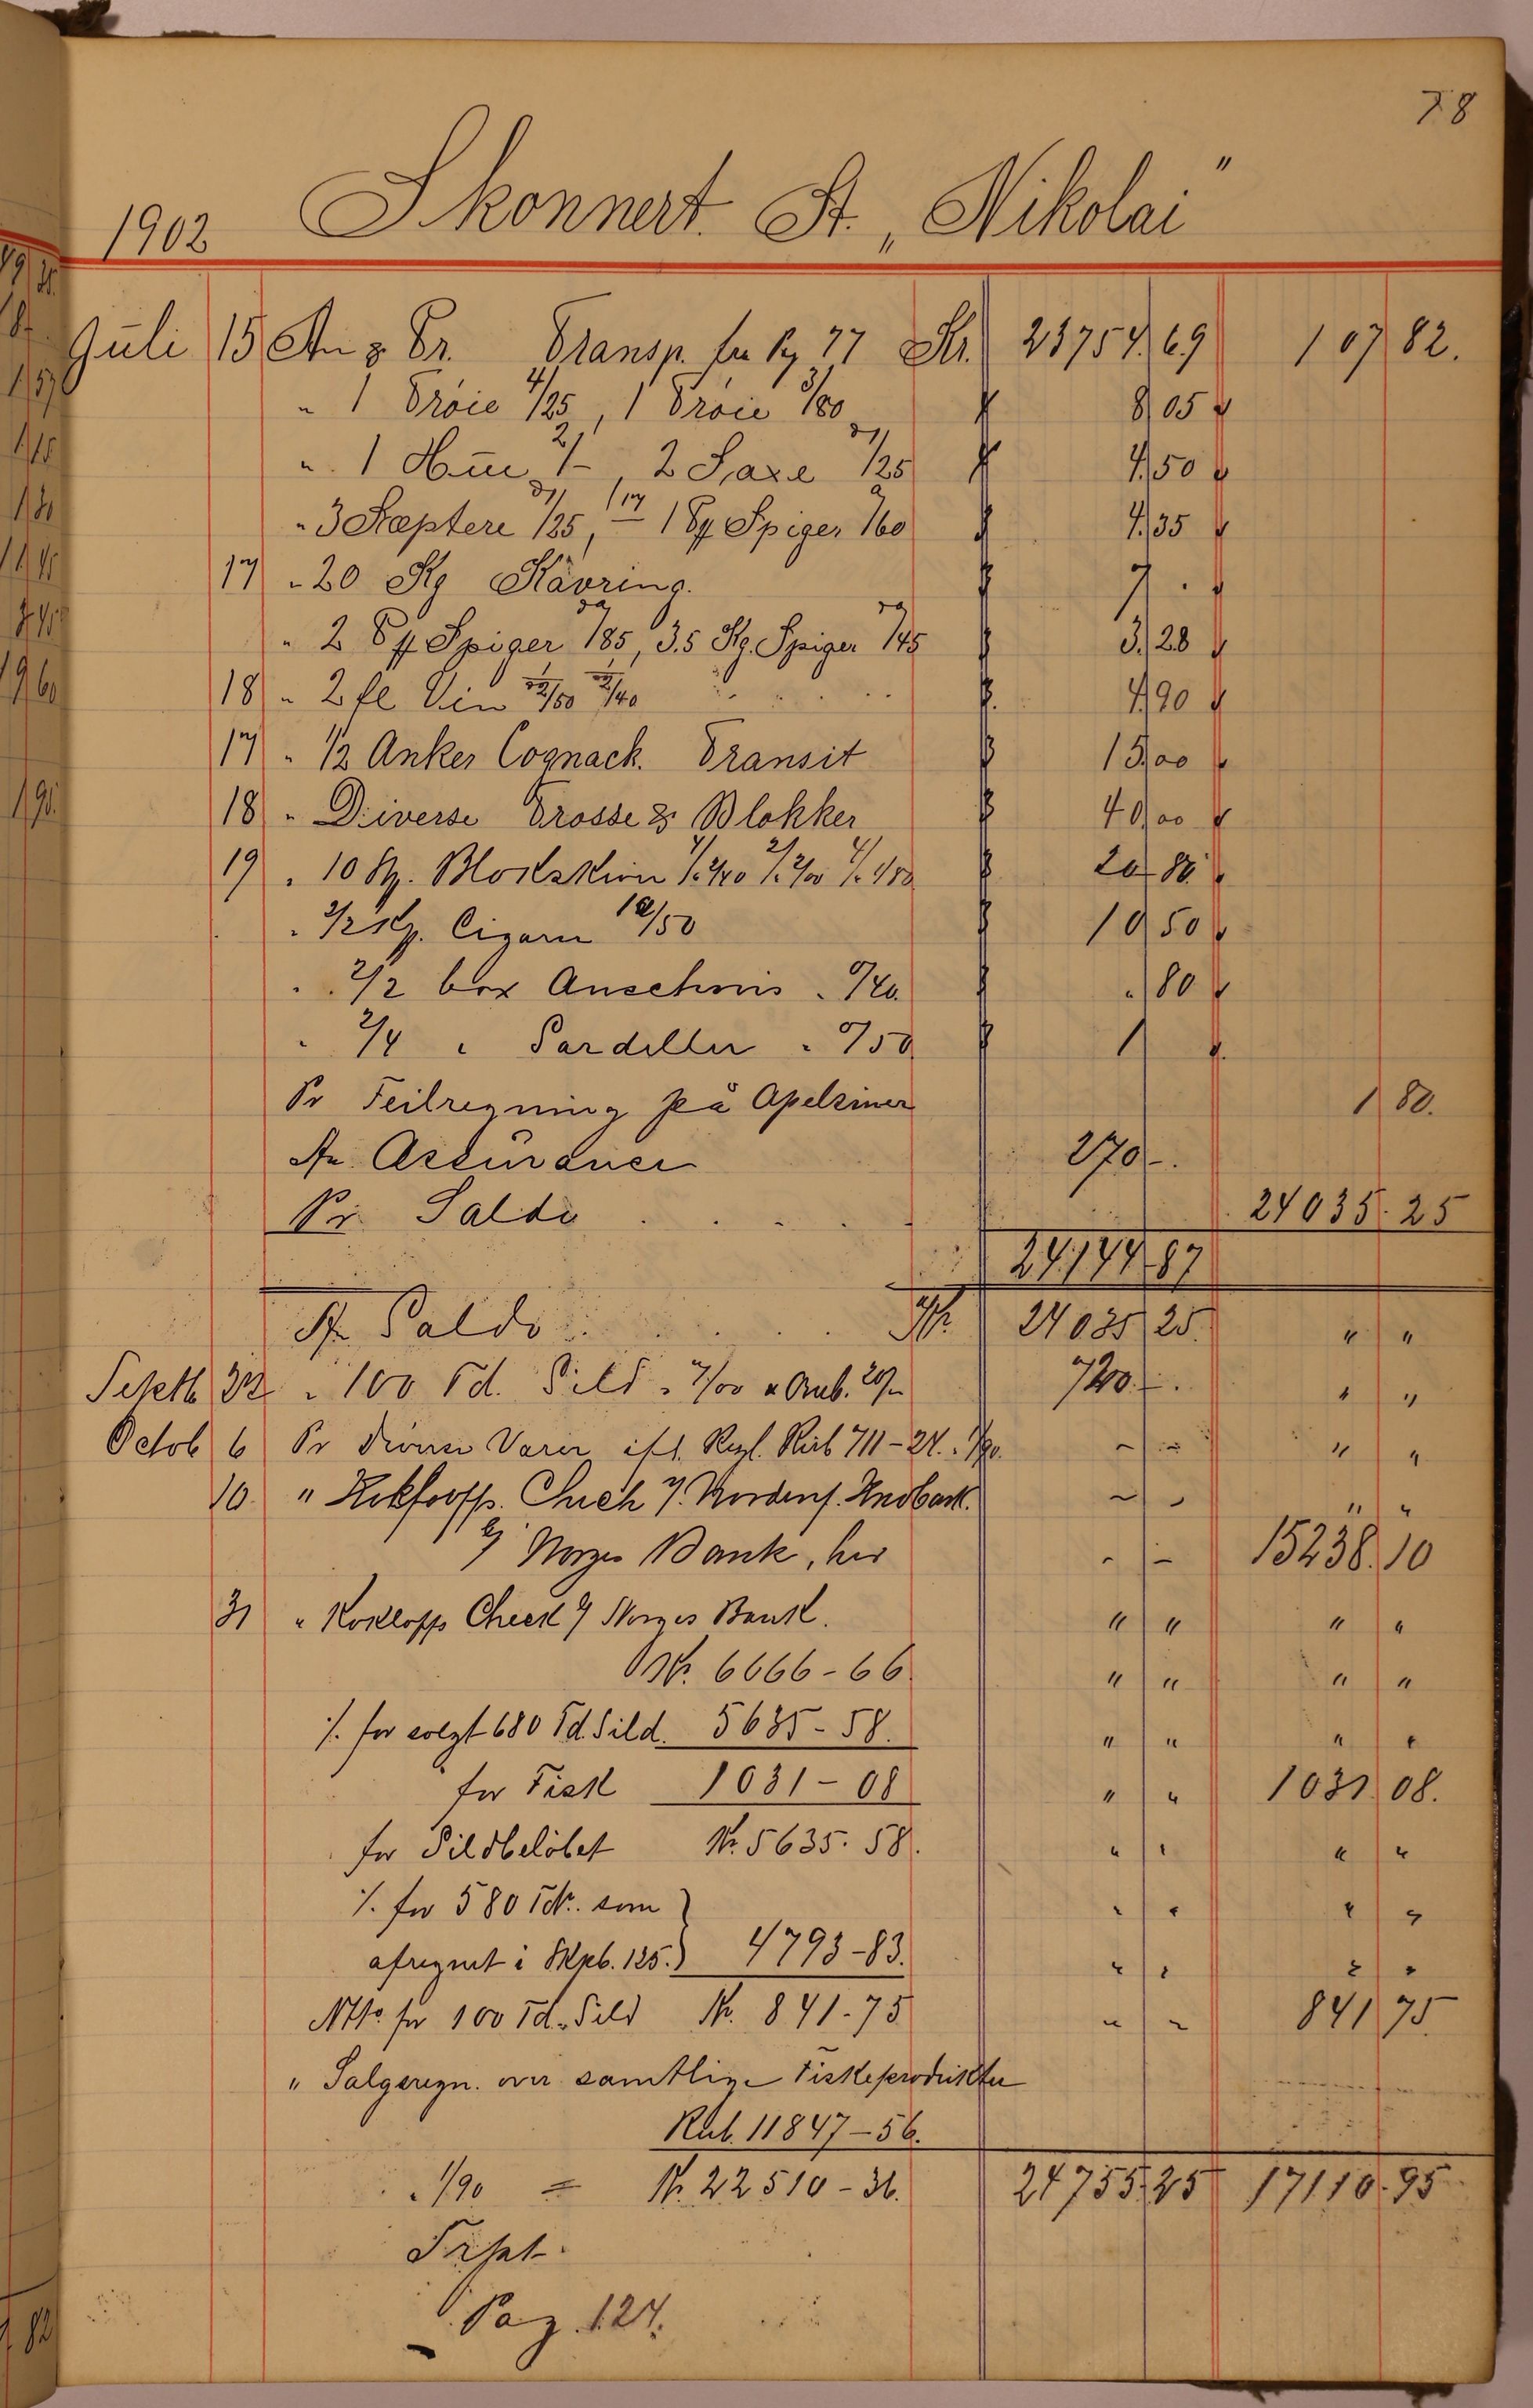 78
1902 Skonnert. St. „Nikolai"
Juli 15 An & Pr. Transp. fra Pg 77 Kr. 23754.69 107 82.
" 1 Trøie 4/25, 1 Trøie 3/80 8 05
" 1 Hue 2/-, 2 Saxe 1/25 4.50
" 3 1/25, 1 Pk Spiger /60 4.35
17 " 20 Kg Kavring. 7 .
" 2 Pk Spiger /85, 3.5 Kg. Spiger /45 3.28
18 " 2 fl Vin 2/50 2/40 4.90
17 " 1/2 Anker Cognack. Transit 15.00
18 " Diverse Trosse & Blokker 40.00
19 " 10 2/40 2/00 20 80
" 2/2 Ks. Cigarer 10/50 10 50
" 2/2 box Anschovis " 0/40. " 80
" 2/4 " Sardeller " 0/50 1
Pr Feilregning på Apelsiner 1 80.
An Assurance 270 -.
Pr. Saldo 24035.25
24144 87
An Saldo Kr. 24035 25. " "
Septb 22 " 100 Td. Sild " 7/00 720 -. " "
Octob 6 Pr Diverse Varer ifl. 711-24. " 1/90. - - " "
10 " Check - - " "
Norges Bank, her - - 15238.10
31 " Check Norges Bank. " " " "
Kr. 6666-66 " " " "
÷ for solgt 680 Td. Sild. 5635-58. " " " "
for Fisk 1031-08 " " 1031 08.
for Sildbeløbet Kr. 5635.58. " " " "
÷ for 580 Tdr. som " " " "
afregnet i 125. 4793-83. " " " "
Ntto. for 100 Td. Sild Kr. 841-75 " " 841 75.
" Salgsregn. over samtlige Fiskeprodukter
Rub. 11847-56.
" 1/90 = Kr. 22510-36. 24755.25 17110.95
Trpt.
Pag. 124.